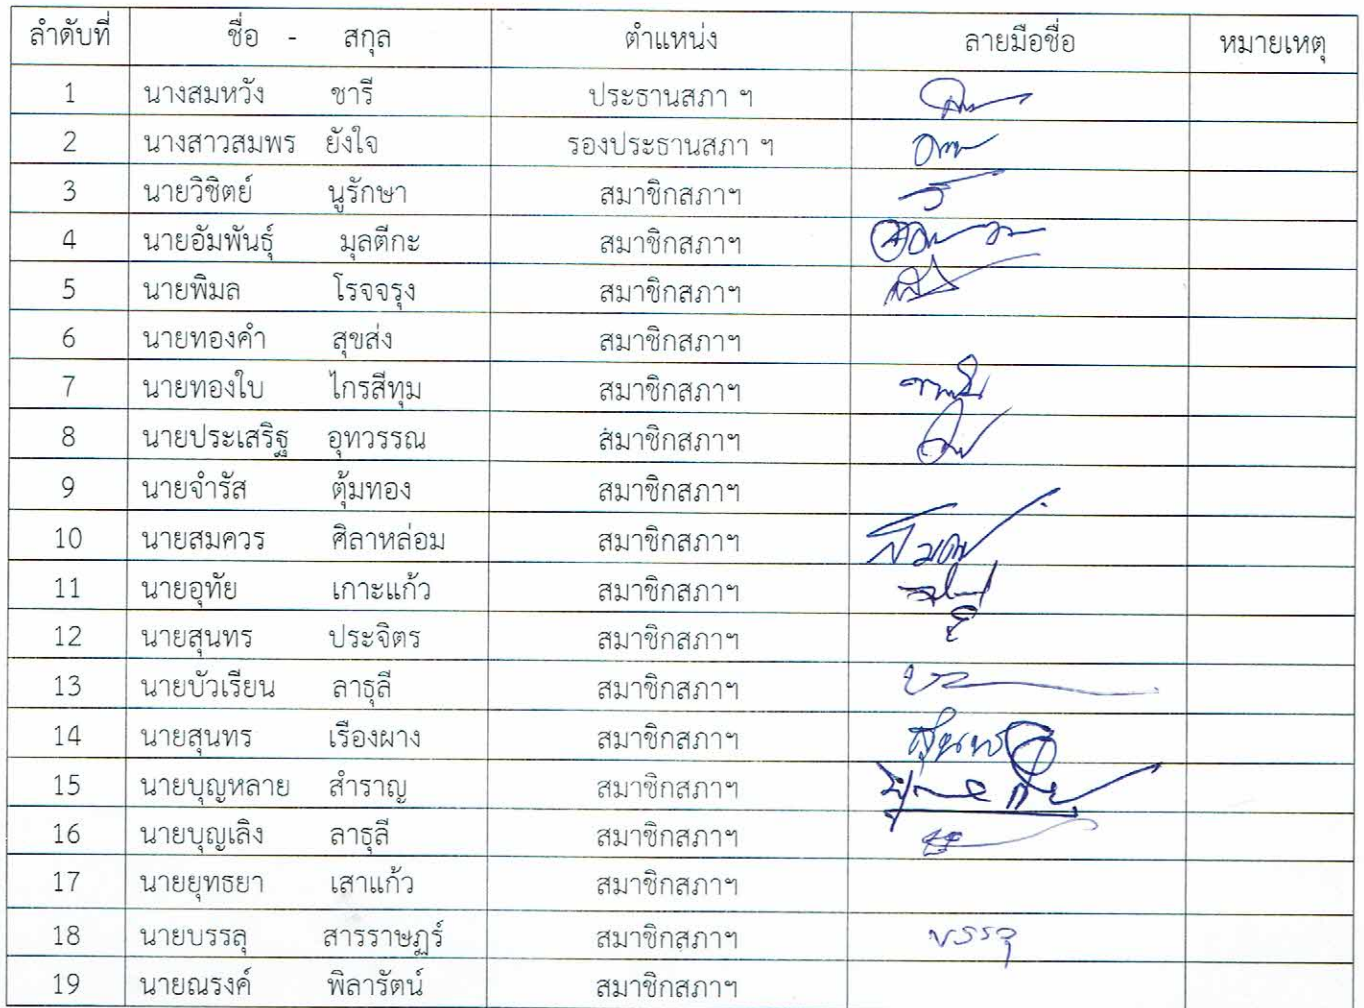 ลำดับที่ ชื่อ - สกุล ตำแหน่ง ลายมือชื่อ หมายเหตุ
1 นางสมหวัง ชารี ประธานสภา ฯ
2 นางสาวสมพร ยังใจ รองประธานสภา ฯ
3 นายวิชิตย์ นูรักษา สมาชิกสภาฯ
4 นายอัมพันธุ์ มุลตีกะ สมาชิกสภาฯ
5 นายพิมล โรจจรุง สมาชิกสภาฯ
6 นายทองคำ สุขส่ง สมาชิกสภาฯ
7 นายทองใบ ไกรสีทุม สมาชิกสภาฯ
8 นายประเสริฐ อุทวรรณ สมาชิกสภาฯ
9 นายจำรัส ตุ้มทอง สมาชิกสภาฯ
10 นายสมควร ศิลาหล่อม สมาชิกสภาฯ
11 นายอุทัย เกาะแก้ว สมาชิกสภาฯ
12 นายสุนทร ประจิตร สมาชิกสภาฯ
13 นายบัวเรียน ลาธุลี สมาชิกสภาฯ
14 นายสุนทร เรืองผาง สมาชิกสภาฯ
15 นายบุญหลาย สำราญ สมาชิกสภาฯ
16 นายบุญเลิง ลาธุลี สมาชิกสภาฯ
17 นายยุทธยา เสาแก้ว สมาชิกสภาฯ
18 นายบรรลุ สารราษฎร์ สมาชิกสภาฯ บรรลุ
19 นายณรงค์ พิลารัตน์ สมาชิกสภาฯ